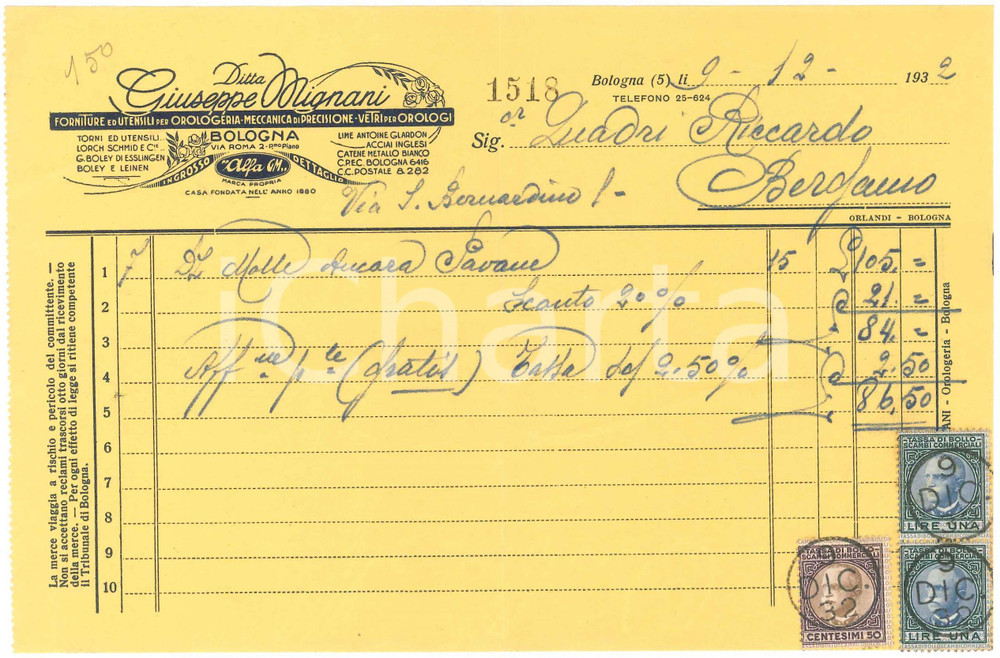 150
Ditta
Giuseppe Mignani
FORNITURE ED UTENSILI PER OROLOGERIA-MECCANICA DI PRECISIONE-VETRI PER OROLOGI
TORNI ED UTENSILI
LORCH SCHMID E C.
G. BOLEY DI ESSLINGEN
BOLEY E LEINEN
BOLOGNA
VIA ROMA 2-PMO PIANO
LIME ANTOINE GLARDON
ACCIAI INGLESI
CATENE METALLO BIANCO
C.P.E.C. BOLOGNA 6416
C.C. POSTALE 8282
INGROSSO "Alfa G.M." DETTAGLIO
MARCA PROPRIA
CASA FONDATA NELL'ANNO 1880
1518
Bologna (5) li 9-12-1932
TELEFONO 25-624
Sig. Quadri Riccardo
Bergamo
Via S. Bernardino
ORLANDI - BOLOGNA
1 7 Dz Molle Ancora 15 105.=
2 Sconto 20% 21.=
3 84.=
4 (Gratis) Tassa 2,50% 2.50
5 86,50
6
7
8
9
10
La merce viaggia a rischio e pericolo del committente. —
Non si accettano reclami trascorsi otto giorni dal ricevimento
della merce. — Per ogni effetto di legge si ritiene competente
il Tribunale di Bologna.
ANI - Orologeria - Bologna
iCharta
TASSA DI BOLLO-
SCAMBI COMMERCIALI
9
DIC.
LIRE UNA
TASSA DI BOLLO-
SCAMBI COMMERCIALI
DIC.
32
CENTESIMI 50
TASSA DI BOLLO-
SCAMBI COMMERCIALI
9
DIC.
LIRE UNA